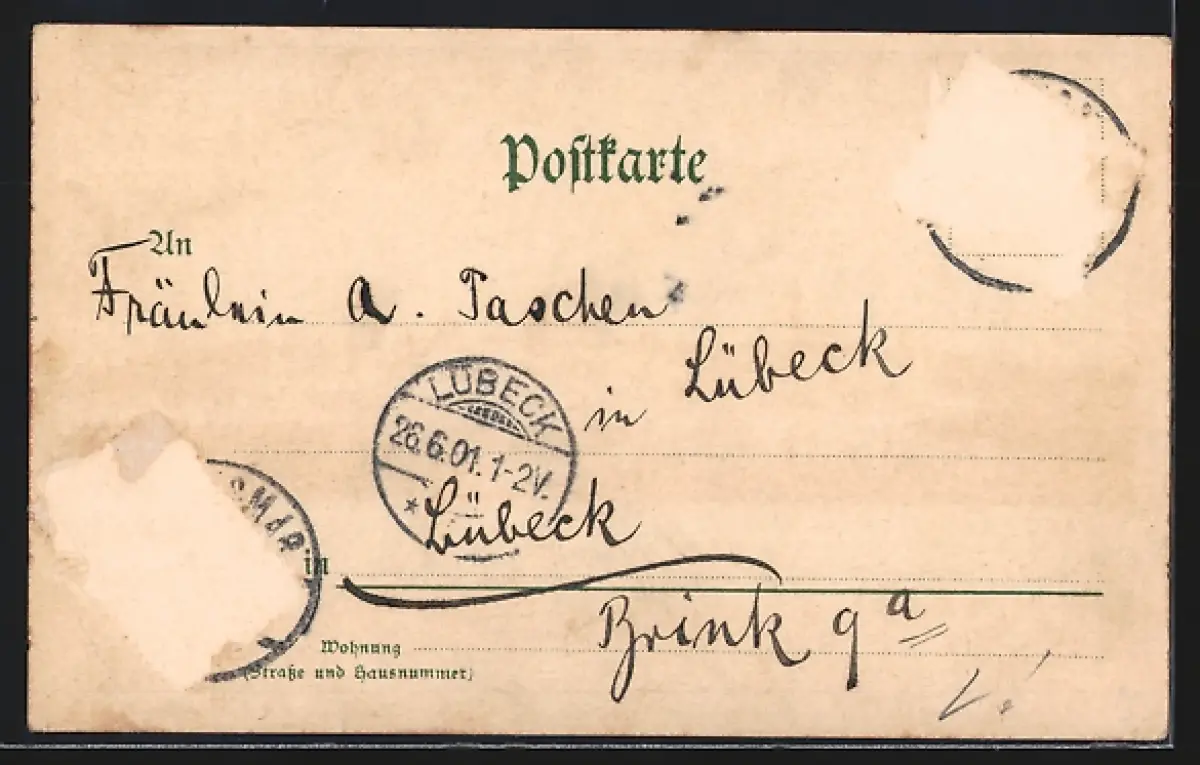 Postkarte
An
Fräulein A. Taschen
in Lübeck
LÜBECK
26.6.01. 1-2V.
*
SMAR
in Lübeck
Brink 9a
Wohnung
(Straße und Hausnummer)